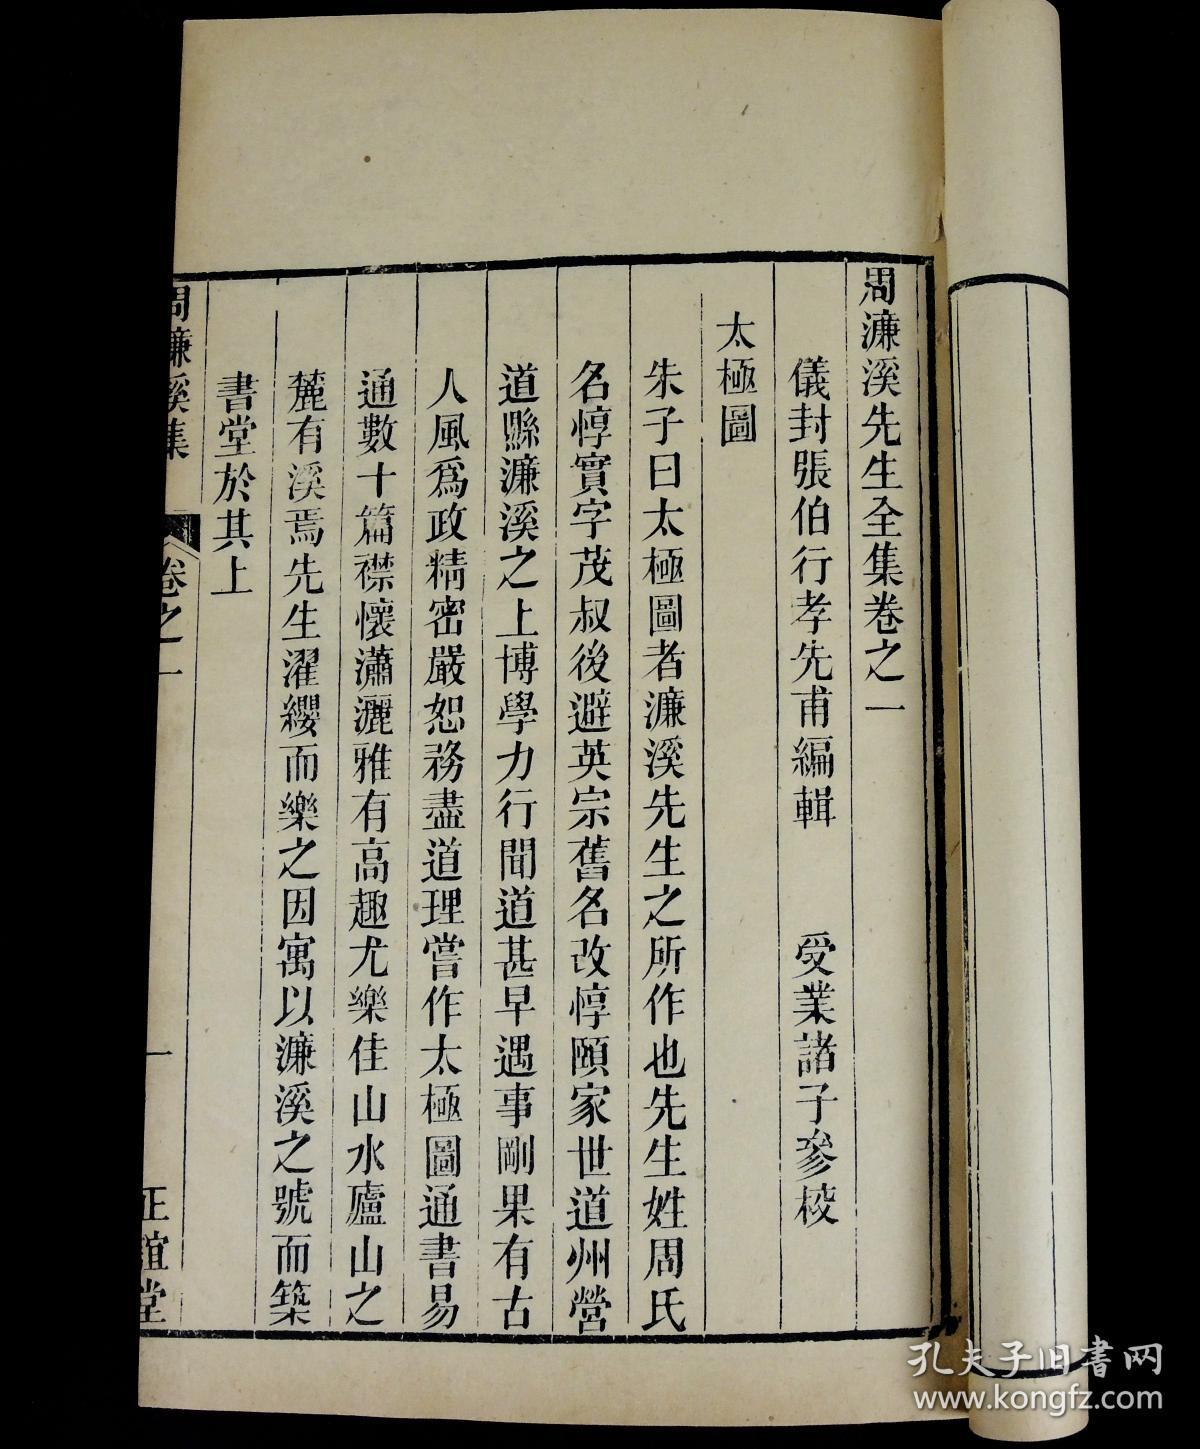 周濂溪先生全集卷之一
儀封張伯行孝先甫編輯　受業諸子參校
太極圖
朱子曰太極圖者濂溪先生之所作也先生姓周氏
名惇實字茂叔後避英宗舊名改惇頤家世道州營
道縣濂溪之上博學力行聞道甚早遇事剛果有古
人風爲政精密嚴恕務盡道理嘗作太極圖通書易
通數十篇襟懷瀟灑雅有高趣尤樂佳山水廬山之
麓有溪焉先生濯纓而樂之因寓以濂溪之號而築
書堂於其上
周濂溪集　卷之一　一　正誼堂
孔夫子旧書网
www.kongfz.com